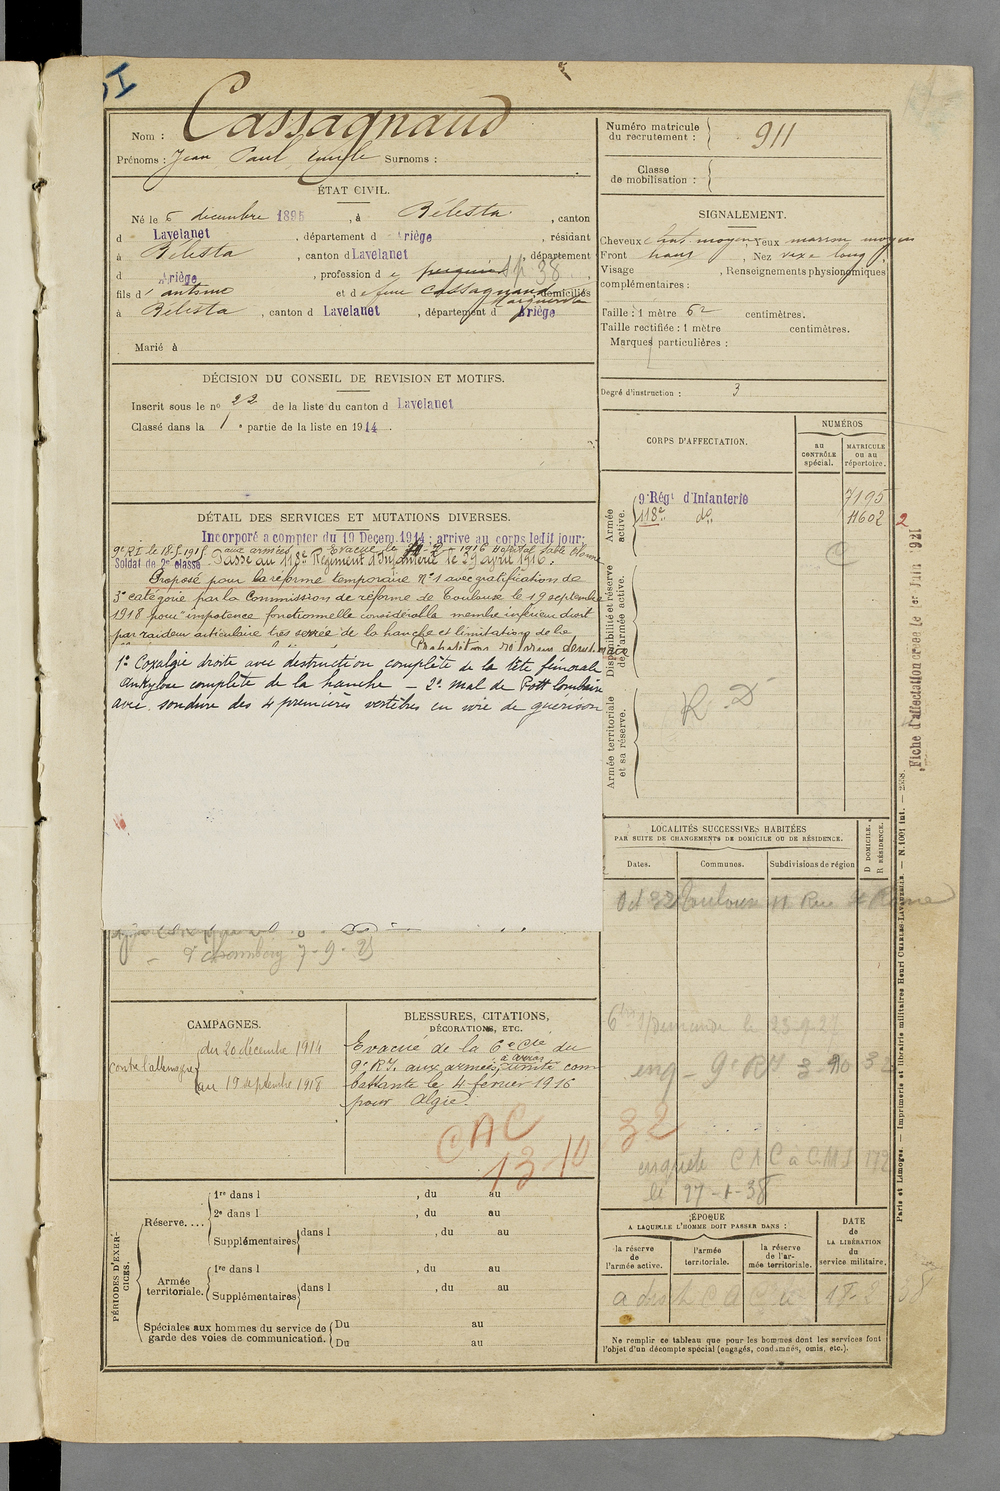 Nom : Cassagnaud
Prénoms : Jean Paul Emile Surnoms :
Numéro matricule du recrutement : 911
Classe de mobilisation :
ÉTAT CIVIL.
Né le 6 décembre 1895, à Bélesta, canton
d Lavelanet, département d Ariège, résidant
à Bélesta, canton d Lavelanet, département
d Ariège, profession d
fils d' et d Cassagnaud Marguerite, domiciliés
à Bélesta, canton d Lavelanet, département d Ariège
Marié à
SIGNALEMENT.
Cheveux chat. moyens, Yeux marron moyen
Front haut, Nez long
Visage , Renseignements physionomiques
complémentaires :
Taille : 1 mètre 62 centimètres.
Taille rectifiée : 1 mètre centimètres.
Marques particulières :
Degré d'instruction : 3
DÉCISION DU CONSEIL DE REVISION ET MOTIFS.
Inscrit sous le nº 22 de la liste du canton d Lavelanet
Classé dans la 1e partie de la liste en 1914.
CORPS D'AFFECTATION.
NUMÉROS
au CONTRÔLE spécial.
MATRICULE ou au répertoire.
Armée active.
9e Régt d'Infanterie 7195
118e do 11602
2
Disponibilité et réserve de l'armée active.
Armée territoriale et sa réserve.
R. D
Fiche d'affectation créée le 1er Juin 1921
DÉTAIL DES SERVICES ET MUTATIONS DIVERSES.
Incorporé a compter du 19 Décem. 1914 ; arrive au corps ledit jour;
9e RI le 18.5.1915 aux armées Evacué le 4-2-1916 Hopital Sable Olonne
Soldat de 2e classe. Passé au 118e Régiment d'Infanterie le 29 avril 1916.
Proposé pour la réforme temporaire Nº 1 avec gratification de
3e catégorie par la Commission de réforme de Toulouse le 19 septembre
1918 pour "impotence fonctionnelle considérable membre inférieur droit
par raideur articulaire très serrée de la hanche et limitations de la
1º Coxalgie droite avec destruction complète de la tête fémorale
ankylose complète de la hanche – 2º mal de Pott lombaire
avec soudure des 4 premières vertèbres en voie de guérison
7-9-21
LOCALITÉS SUCCESSIVES HABITÉES
PAR SUITE DE CHANGEMENTS DE DOMICILE OU DE RÉSIDENCE.
Dates.
Communes.
Subdivisions de région
D DOMICILE.
R RÉSIDENCE.
Oct 32 Toulouse 11 Rue St Rome
le 23-9-27
enq – 9e RI 3-10 32
32
enquête CAC à CMI 172
le 27-1-38
CAMPAGNES.
Contre l'allemagne
du 20 décembre 1914
au 19 septembre 1918
BLESSURES, CITATIONS,
DÉCORATIONS, ETC.
Evacué de la 6e Cie du
9e RI. aux armées, à Arras unité com
battante le 4 février 1916
pour algie.
CAC
13-10
PÉRIODES D'EXERCICES.
Réserve....
1re dans l , du au
2e dans l , du au
Supplémentaires dans l , du au
Armée territoriale.
1re dans l , du au
Supplémentaires dans l , du au
Spéciales aux hommes du service de garde des voies de communication.
Du au
Du au
ÉPOQUE
A LAQUELLE L'HOMME DOIT PASSER DANS :
la réserve de l'armée active.
l'armée territoriale.
la réserve de l'armée territoriale.
DATE de LA LIBÉRATION du service militaire.
Ne remplir ce tableau que pour les hommes dont les services font
l'objet d'un décompte spécial (engagés, condamnés, omis, etc.).
Paris et Limoges. — Imprimerie et librairie militaires Henri CHARLES-LAVAUZELLE. — N. 1001 int.